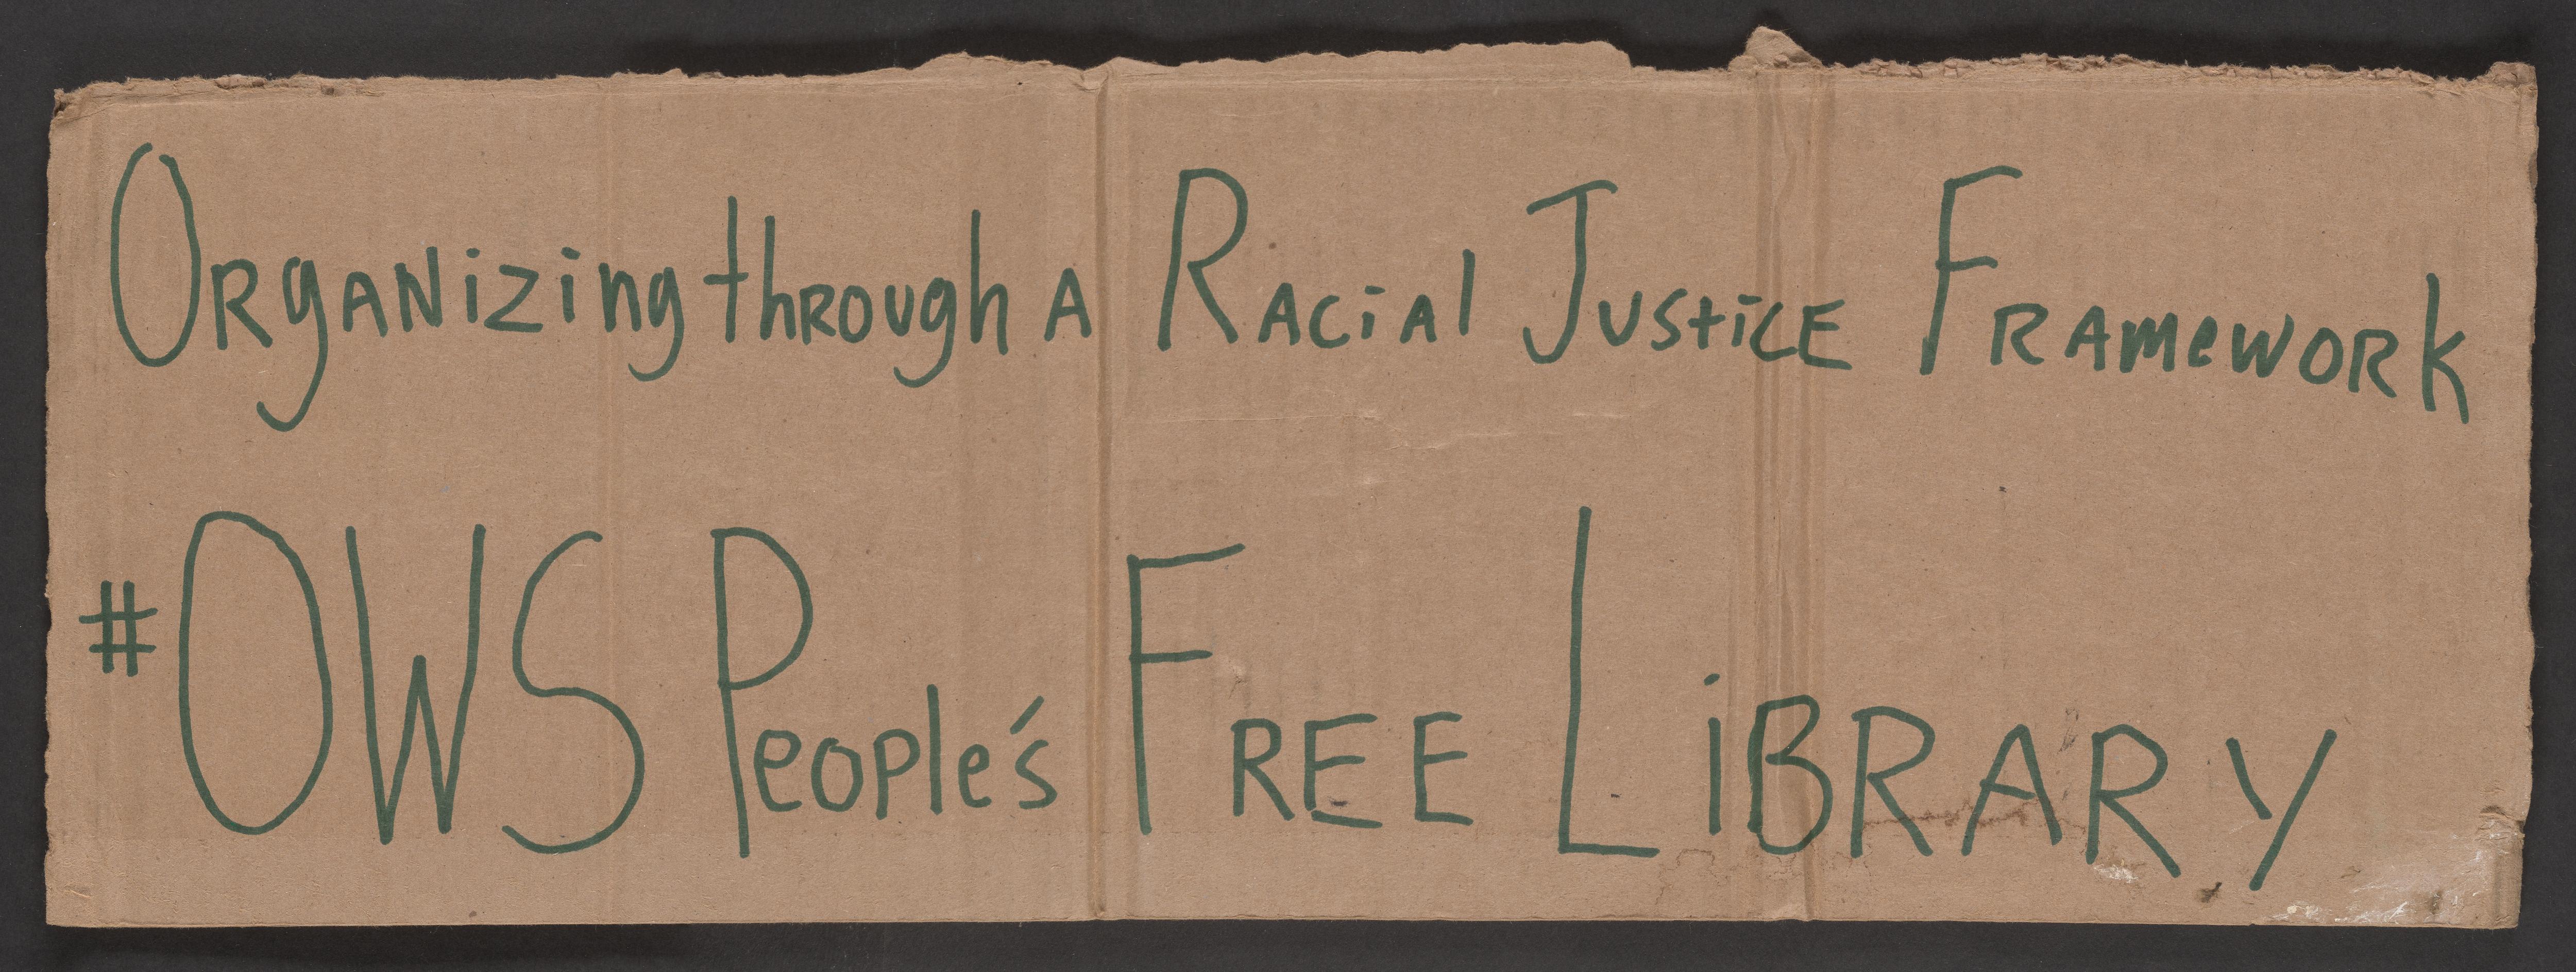 Organizing through A Racial Justice Framework
#OWS People's Free Library